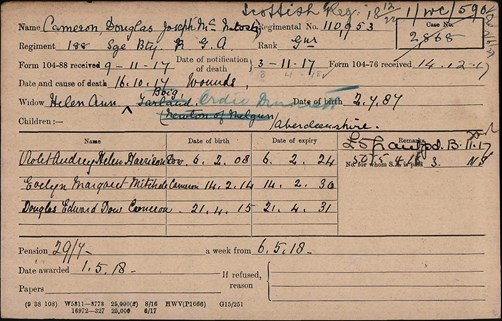 Scottish Reg. 18 13/22 11/WC/590
Name Cameron, Douglas Joseph Mc Intosh Regimental No. 110953
Case No. 2868
Regiment 188 Sge Bty. R G A Rank Gnr
Form 104-88 received 9-11-17 Date of notification of death 3-11-17 Form 104-76 received 14.12.17
Date and cause of death 16.10.17 Wounds,
Widow Helen Ann Date of birth 2.4.87
Children:— Aberdeenshire.
Name Date of birth Date of expiry Remarks
Violet Audrey Helen Harrison Dow 6. 2. 08 6. 2. 24
No for whom S.A. is paid 3
Evelyn Margaret Mitchell Cameron 14. 2. 14 14. 2. 30
Douglas Edward Dow Cameron 21. 4. 15 21. 4. 31
Pension 29/7 a week from 6.5.18-
Date awarded 1.5.18- If refused, reason
Papers
(9 38 106) W5811—8778 25,000(6) 8/16 HWV(P1666) G15/251
16972—327 25,000 6/17